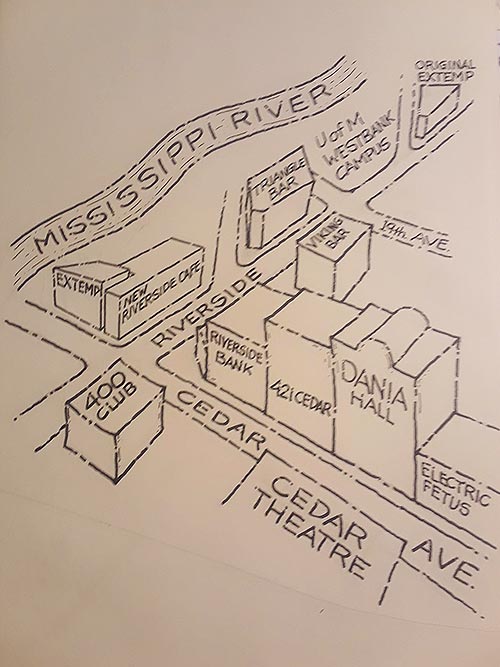 ORIGINAL
EXTEMP
MISSISSIPPI RIVER
U of M
WESTBANK
CAMPUS
TRIANGLE
BAR
19th AVE.
VIKING
BAR
EXTEMP
NEW
RIVERSIDE CAFE
RIVERSIDE
RIVERSIDE
BANK
421 CEDAR
DANIA
HALL
400
CLUB
CEDAR
AVE.
ELECTRIC
FETUS
CEDAR
THEATRE